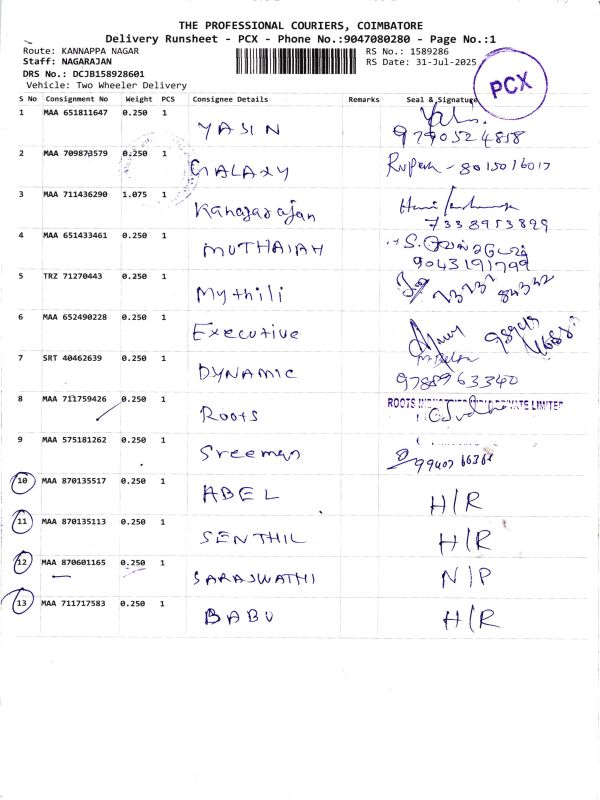 THE PROFESSIONAL COURIERS, COIMBATORE
Delivery Runsheet - PCX - Phone No.:9047080280 - Page No.:1
Route: KANNAPPA NAGAR RS No.: 1589286
Staff: NAGARAJAN RS Date: 31-Jul-2025
DRS No.: DCJB158928601
Vehicle: Two Wheeler Delivery
PCX
S No Consignment No Weight PCS Consignee Details Remarks Seal & Signature
1 MAA 651811647 0.250 1 YASIN 9790524858
2 MAA 709873579 0.250 1 GALAXY Rupesh - 8015016017
3 MAA 711436290 1.075 1 Kanagarajan
7338953899
4 MAA 651433461 0.250 1 MUTHAIAH
9043191799
5 TRZ 71270443 0.250 1 Mythili
6 MAA 652490228 0.250 1 Executive
7 SRT 40462639 0.250 1 DYNAMIC 9788963340
8 MAA 711759426 0.250 1 Roots ROOTS PRIVATE LIMITED
9 MAA 575181262 0.250 1 Sreeman
10 MAA 870135517 0.250 1 ABEL H/R
11 MAA 870135113 0.250 1 SENTHIL H/R
12 MAA 870601165 0.250 1 SARASWATHI N/P
13 MAA 711717583 0.250 1 BABU H/R